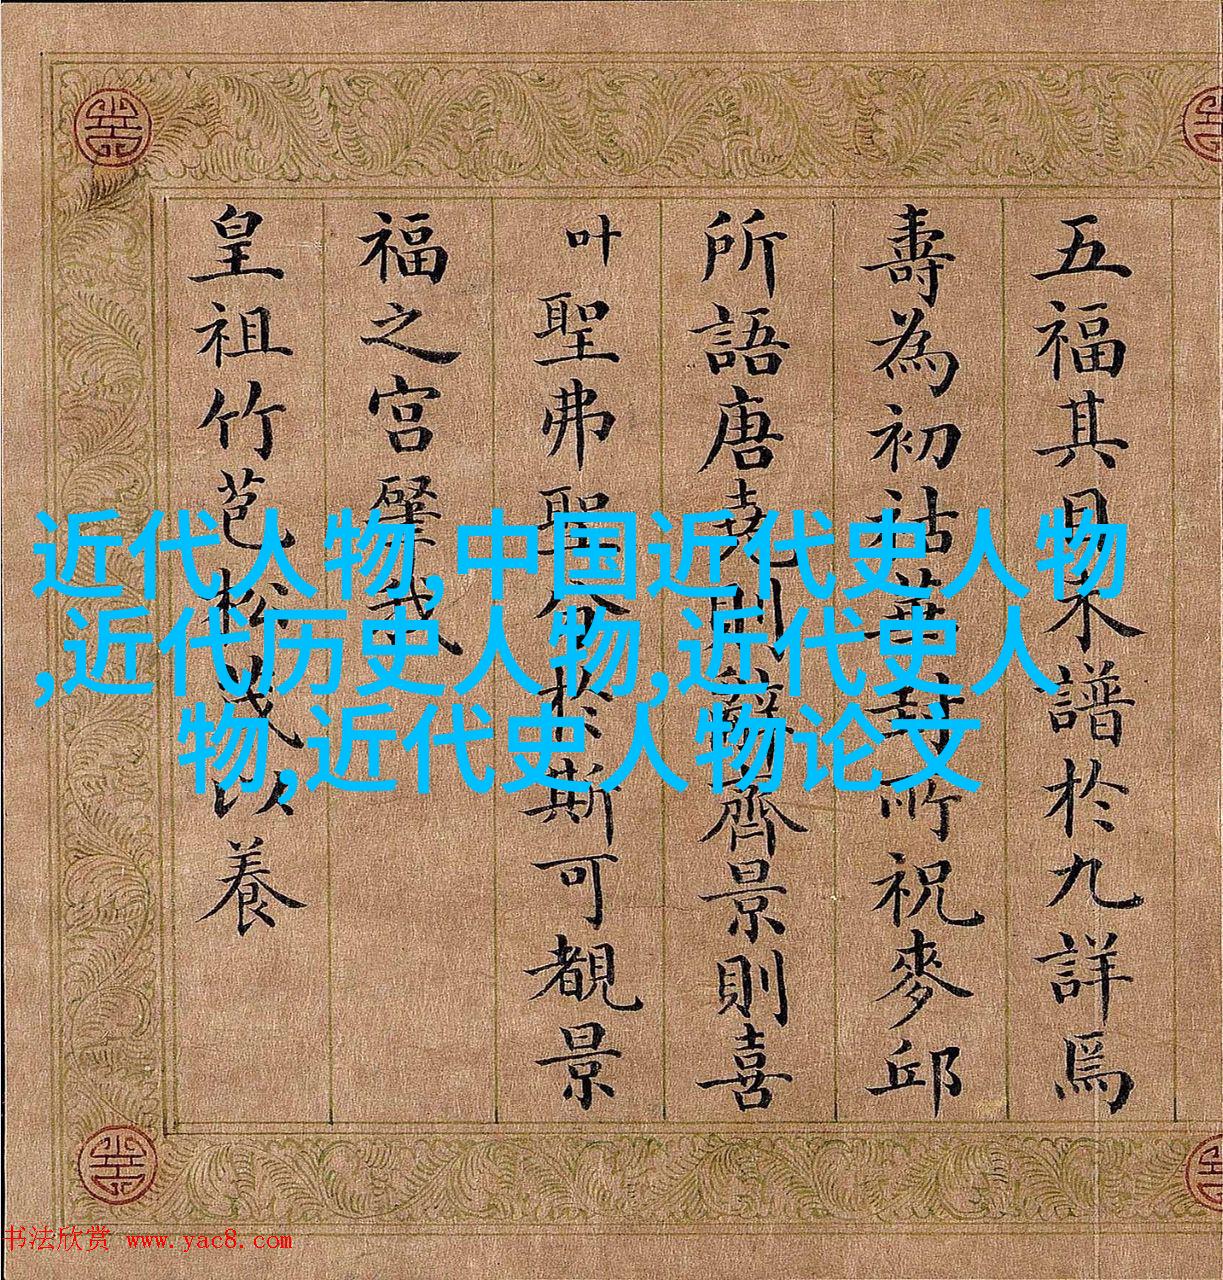 五福其譜於九詳焉
壽為初祜華封所祝麥邱
所語唐堯則辭齊景則喜
叶聖弗聖於斯可覩景
福之宮肇我
皇祖竹苞松茂以養
近代人物,中国近代史人物
,近代历史人物,近代史人
物,近代史人物论文
书法欣赏 www.yac8.com